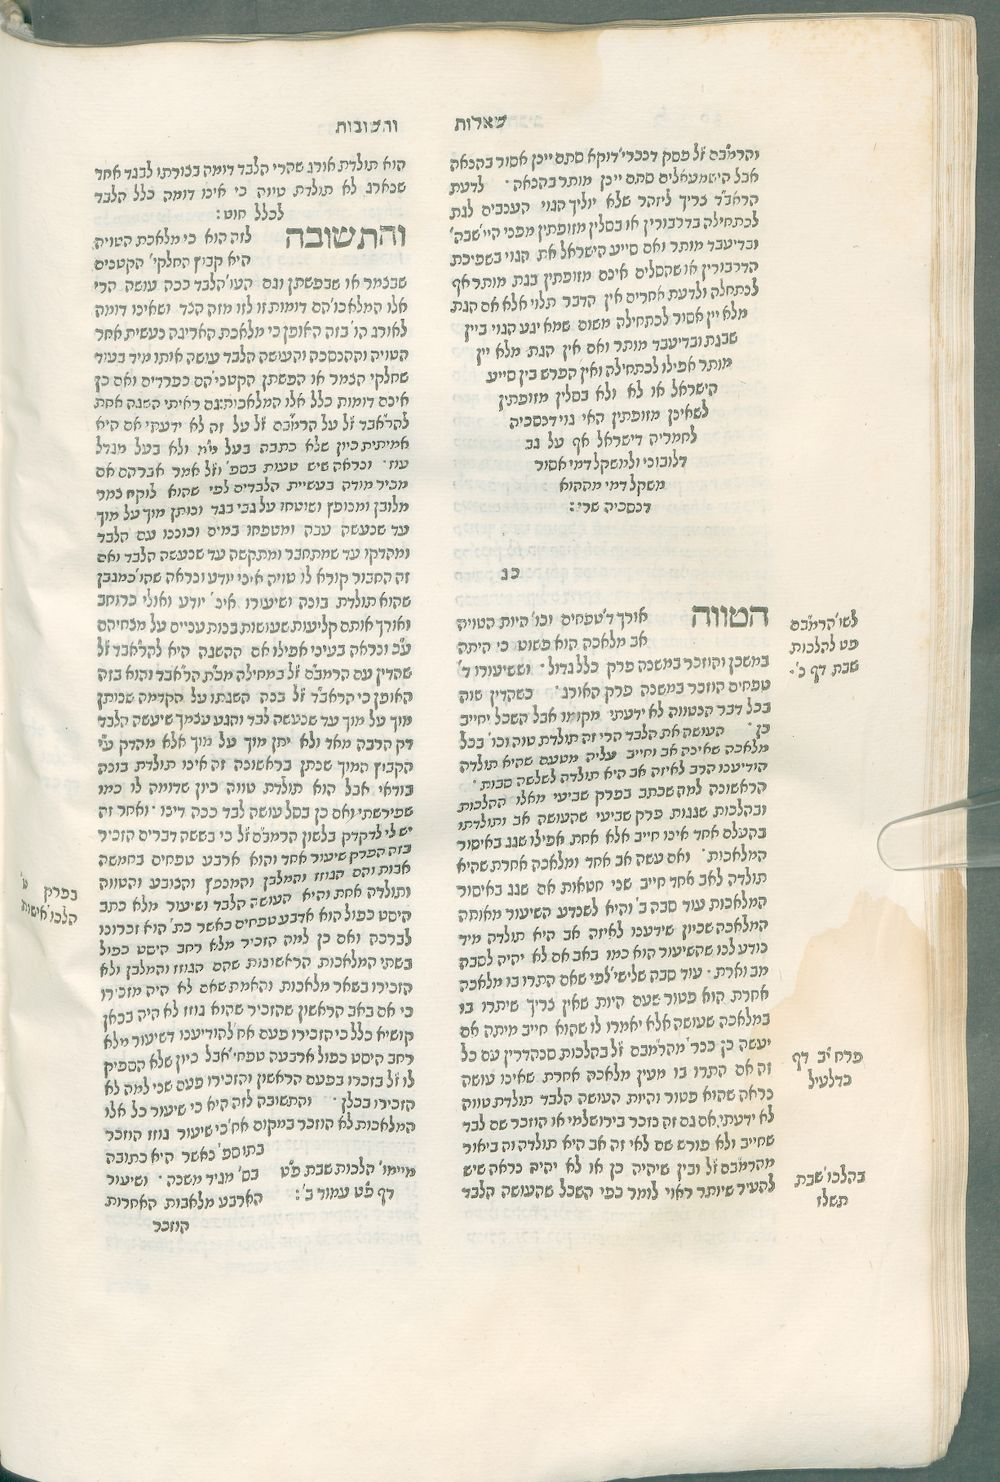 שאלות
ותשובות
והרמב״ם ז״ל פסק דנכרי דוקא סתם יינן אסור בהנאה
אבל הישמעאלים סתם יינן מותר בהנאה · לדעת
הראב״ד צריך ליזהר שלא יוליך הגוי הענבים לגת
לכתחילה בדרבורין או בסלין מזופתין מפני היי׳ שבה׳
ובדיעבד מותר ואם סייע הישראל את הגוי בשפיכת
הדרבורין או שהסלים אינם מזופתין בגת מותר אף
לכתחלה ולדעת אחרים אין הדבר תלוי אלא אם הגת
מלא יין אסור לכתחילה משום שמא יגע הגוי ביין
שבגת ובדיעבד מותר ואם אין הגת מלא יין
מותר אפילו לכתחלה ואין הפרש בין סייע
הישראל או לא ולא בסלין מזופתין
לשאינן מזופתין האי גוי דנסכיה
לחמריה דישראל אף על גב
דלזבוני ולמשקל דמי אסור
משקל דמי מההוא
דנסכיה שרי :
כג
הטווה
אורך ד׳ טפחים וכו׳ היות הטויה
אב מלאכה הוא פשוט כי היתה
במשכן והוזכר במשנה פרק כלל גדול · וששיעורו ד׳
טפחים הוזכר במשנה פרק האורג · כשהדין שוה
בכל דבר הנטווה לא ידעתי מקומו אבל השכל יחייב
כן · העושה את הלבד הרי זה תולדת טוה וכו׳ בכל
מלאכה שאינה אב וחייב עליה מטעם שהיא תולדה
הודיענו הרב לאיזה אב היא תולדה לשלשה סבות ·
הראשונה למה שכתב בפרק שביעי מאלו ההלכות
ובהלכות שגגות פרק שביעי שהעושה אב ותולדתו
בהעלם אחד אינו חייב אלא אחת אפילו שגג באיסור
המלאכות · ואם עשה אב אחד ומלאכה אחרת שהיא
תולדה לאב אחד חייב שני חטאות אם שגג באיסור
המלאכות עוד סבה ב׳ והיא לשנדע השיעור מאותה
המלאכה שכיון שידענו לאיזה אב היא תולדה מיד
נודע לנו שהשיעור הוא כמו באב אם לא יהיה לסבה
מבוארת · עוד סבה שלישי׳ לפי שאם התרו בו מלאכה
אחרת הוא פטור שעם היות שאין צריך שיתרו בו
במלאכה שעושה אלא יאמרו לו שהוא חייב מיתה אם
יעשה כן נכר׳ מהרמב״ם ז״ל בהלכות סנהדרין עם כל
זה אם התרו בו מעין מלאכה אחרת שאינו עושה
נראה שהוא פטור והיות העושה הלבד תולדת טווה
לא ידעתי אם גם זה נזכר בירושלמי או הוזכר שם לבד
שחייב ולא פורש שם לאי זה אב היא תולדה וזה ביאור
מהרמב״ם ז״ל ובין שיהיה כן או לא יהיה נראה שיש
להעיר שיותר ראוי לומר כפי השכל שהעושה הלבד
לשו׳ הרמב״ם
פט להלכות
שבת דף כ׳
פרח י״ב דף
בדלעיל
בהלכו׳ שבת
תשלז
הוא תולדת אורג שהרי הלבד דומה בצורתו לבגד אחד
שנארג לא תולדת טווה כי אינו דומה כלל הלבד
לכלל חוט :
והתשובה
לזה הוא כי מלאכת הטויה
היא קבוץ החלקי׳ הקטנים
שבצמר או שבפשתן וגם העו׳ הלבד ככה עושה הרי
אלו המלאכו׳ הם דומות זו לזו מזה הצד ושאינו דומה
לאורג הו׳ בזה האופן כי מלאכת האריגה נעשית אחר
הטויה וההנסכה והעושה הלבד עושה אותו מיד בעוד
שחלקי הצמר או הפשתן הקטני׳ הם נפרדים ואם כן
אינם דומות כלל אלו המלאכות׃ גם ראיתי השגה אחת
להראב״ד ז״ל על הרמב״ם ז״ל על זה לא ידעתי אם היא
אמיתית כיון שלא כתבה בעל מ״מ ולא בעל מגדל
עוז · ונראה שיש טעות בספ׳ וז״ל אמר אברהם אם
מכיר מודה בעשיית הלבדים לפי שהוא לוקח צמר
מלובן ומנופץ ושוטחו על גבי בגד ונותן מוך על מוך
עד שנעשה עבה ומטפחו במים וכורכו עם הלבד
ומהדקו עד שמתחבר ומתקשה עד שנעשה הלבד ואם
זה החבור קורא לו טויה איני יודע ונראה שהו׳ כמגבן
שהוא תולדת בונה ושיעורו אינ׳ יודע ואולי כרוחב
ואורך אותם קליעות שעושות בנות עניים על מצחיהם
ע״כ ונראה בעיני אפילו אם ההשגה היא להראב״ד ז״ל
שהדין עם הרמב״ם ז״ל במחילה מכ״ת הראב״ד והוא בזה
האופן כי הראב״ד ז״ל בנה השגתו על הקדמה שנותן
מוך על מוך עד שנעשה לבד והגע עצמך שיעשה הלבד
דק הרבה מאד ולא יתן מוך על מוך אלא מהדק ע״י
הקבוץ המוך שנתן בראשונה זה אינו תולדת בונה
בודאי אבל הוא תולדת טווה כיון שדומה לו כמו
שפירשתי ואם כן בסל עושה לבד ככה דינו · ואחר זה
יש לי לדקדק בלשון הרמב״ם ז״ל כי בששה דברים הזכיר
בזה הפרק שיעור אחד והוא ארבע טפחים בחמשה
אבות והם הגוזז והמלבן והמנפץ והצובע והטווה
ותולדה אחת והיא העושה הלבד ושיעור מלא כתב
היסט כפול הוא ארבע טפחים כאשר כת׳ הוא זכרונו
לברכה ואם כן למה הזכיר מלא רחב היסט כפול
בשתי המלאכות הראשונות שהם הגוזז והמלבן ולא
הזכירו בשאר מלאכות והאמת שאם לא היה מזכירו
כי אם באב הראשון שהזכיר שהוא גוזז לא היה בכאן
קושיא כלל כי הזכירו פעם אח׳ להודיענו דשיעור מלא
רחב היסט כפול ארבעה טפחי׳ אבל כיון שלא הספיק
לו ז״ל בזכרו בפעם הראשון והזכירו פעם שני למה לא
הזכירו בכלן · והתשובה לזה היא כי שיעור כל אלו
המלאכות לא הוזכר במקום אח׳ כי שיעור גוזז הוזכר
בתוספ׳ כאשר היא כתובה
בס׳ מגיד משנה · ושיעור
הארבע מלאכות האחרות
מיימו׳ הלכות שבת פ״ט
דף פ״ט עמוד ב׳ :
הוזכר
בפרק ט׳
הלכו׳ אישות